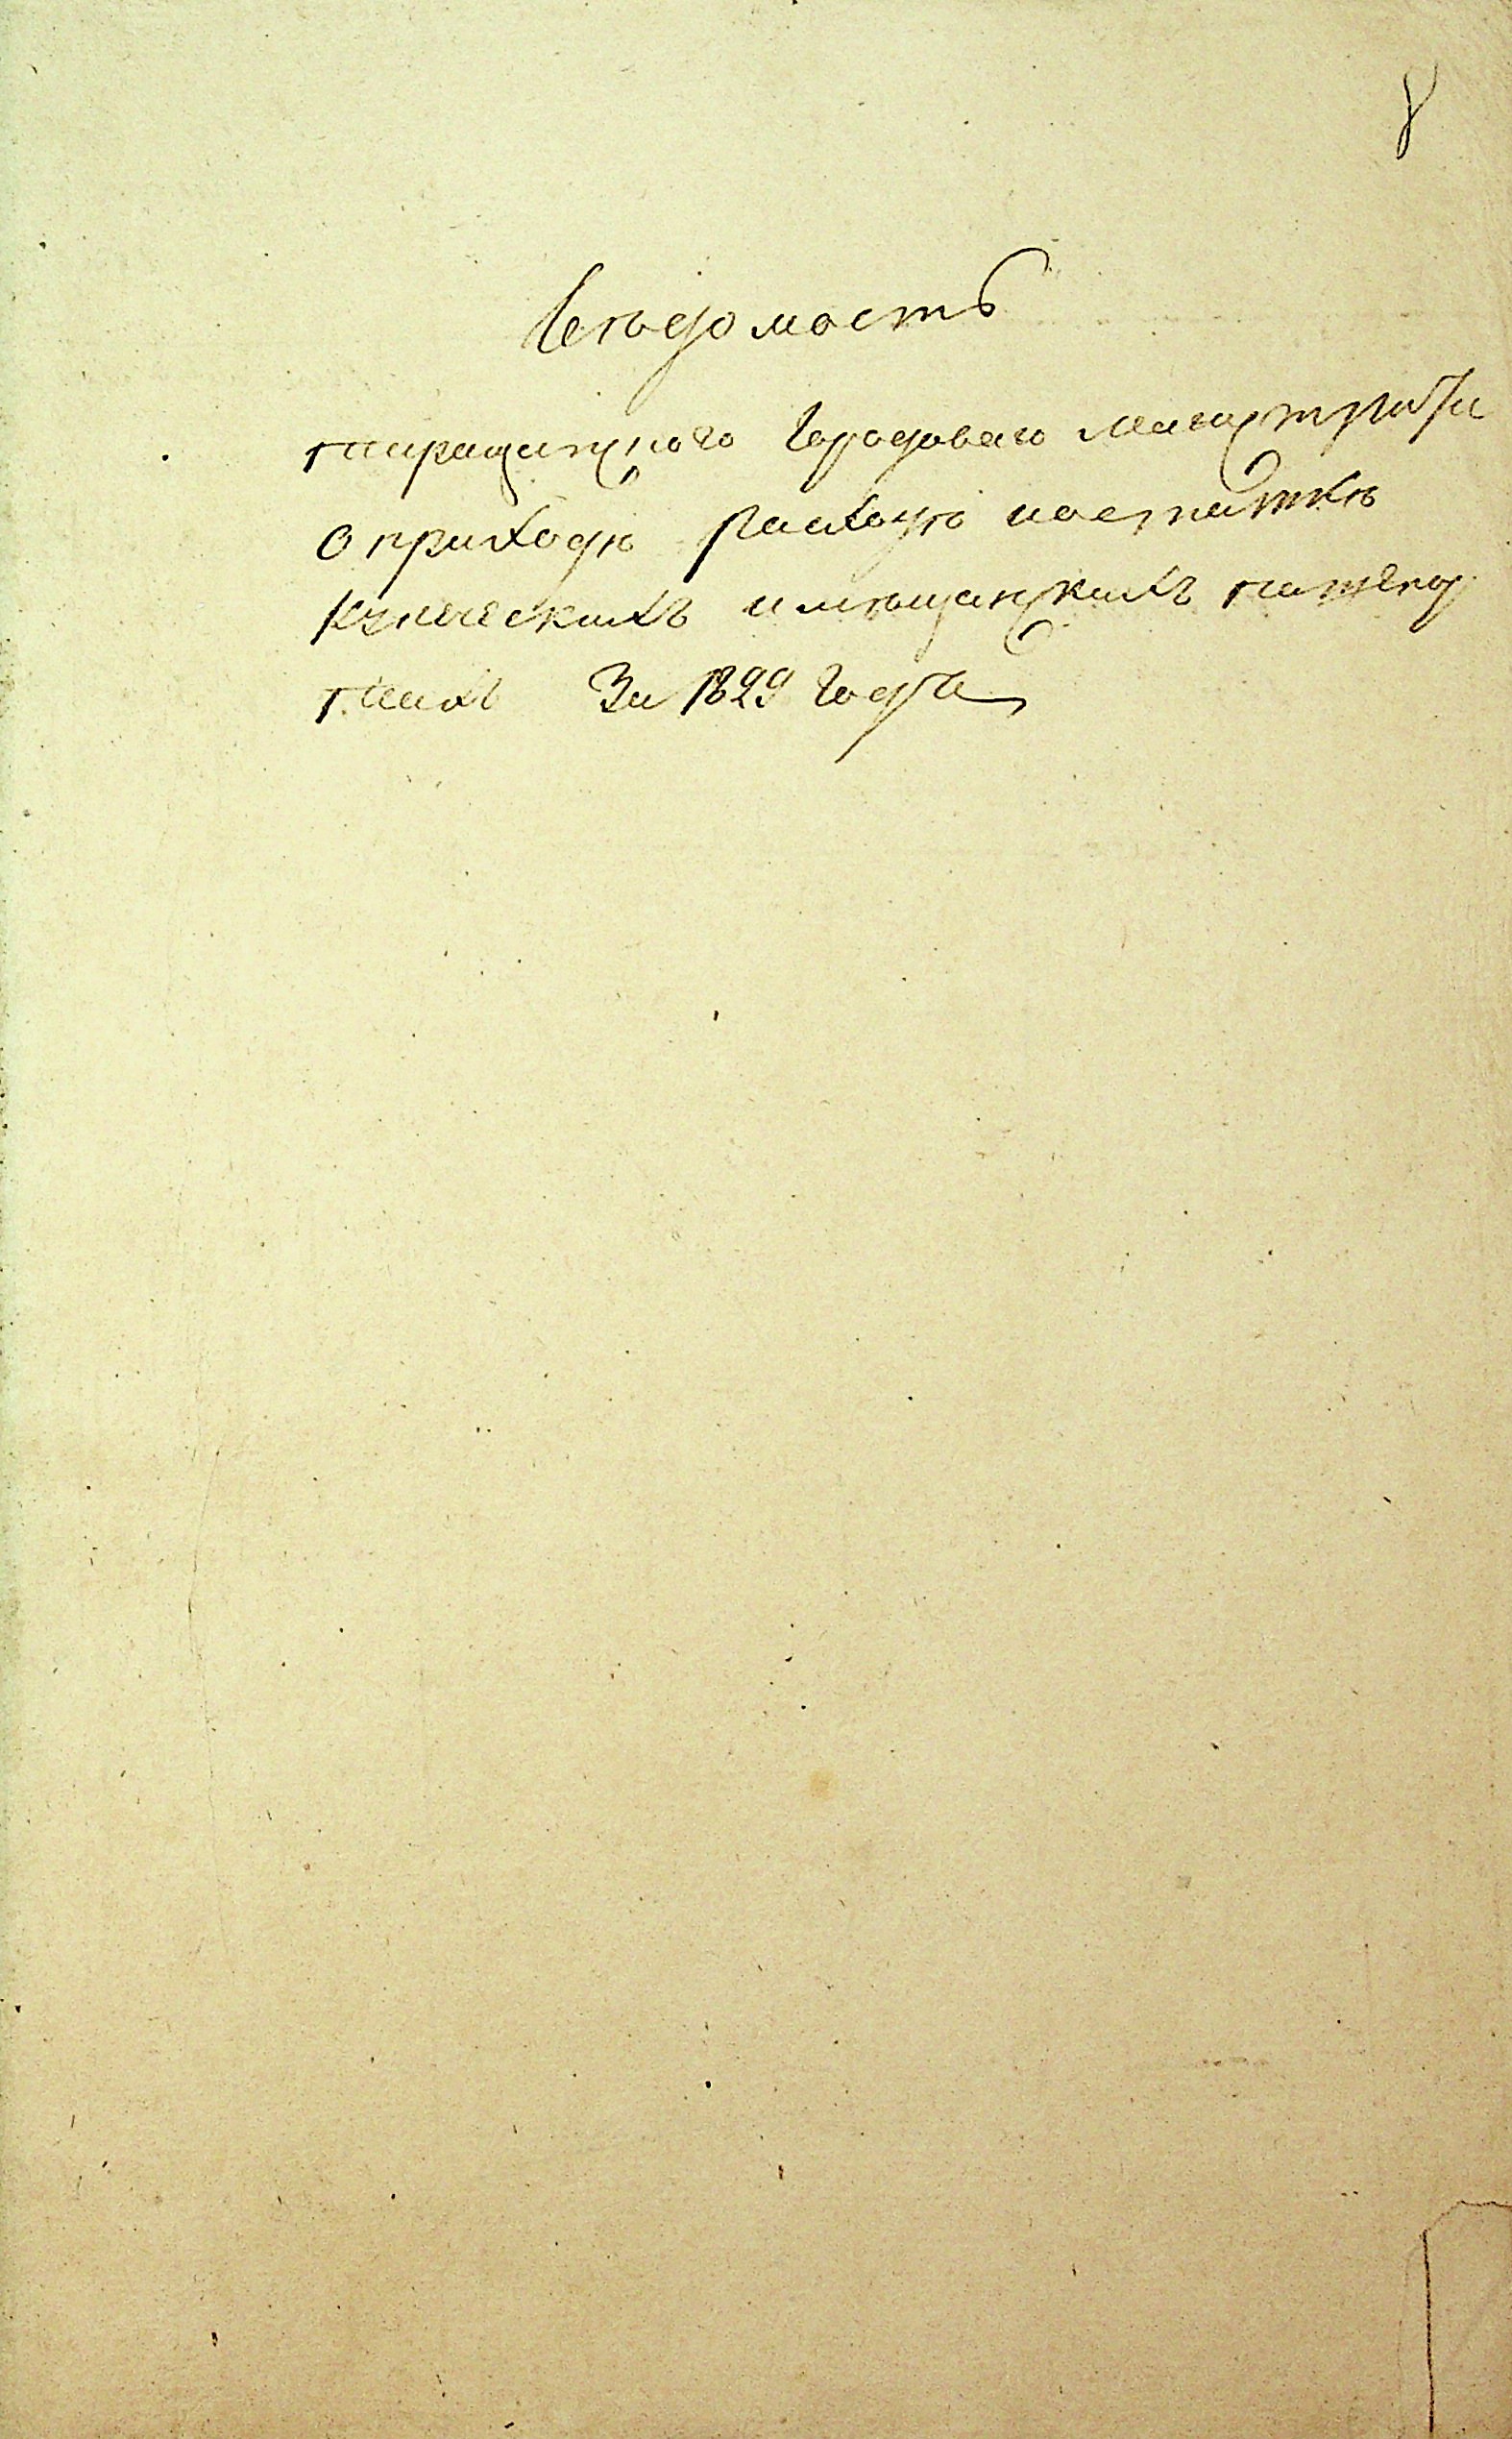 8
Ведомость
таращанского Городоваго магистрата
о приходѣ расходѣ иостаткѣ
купеческихъ имѣщанскихъ
За 1829 Года